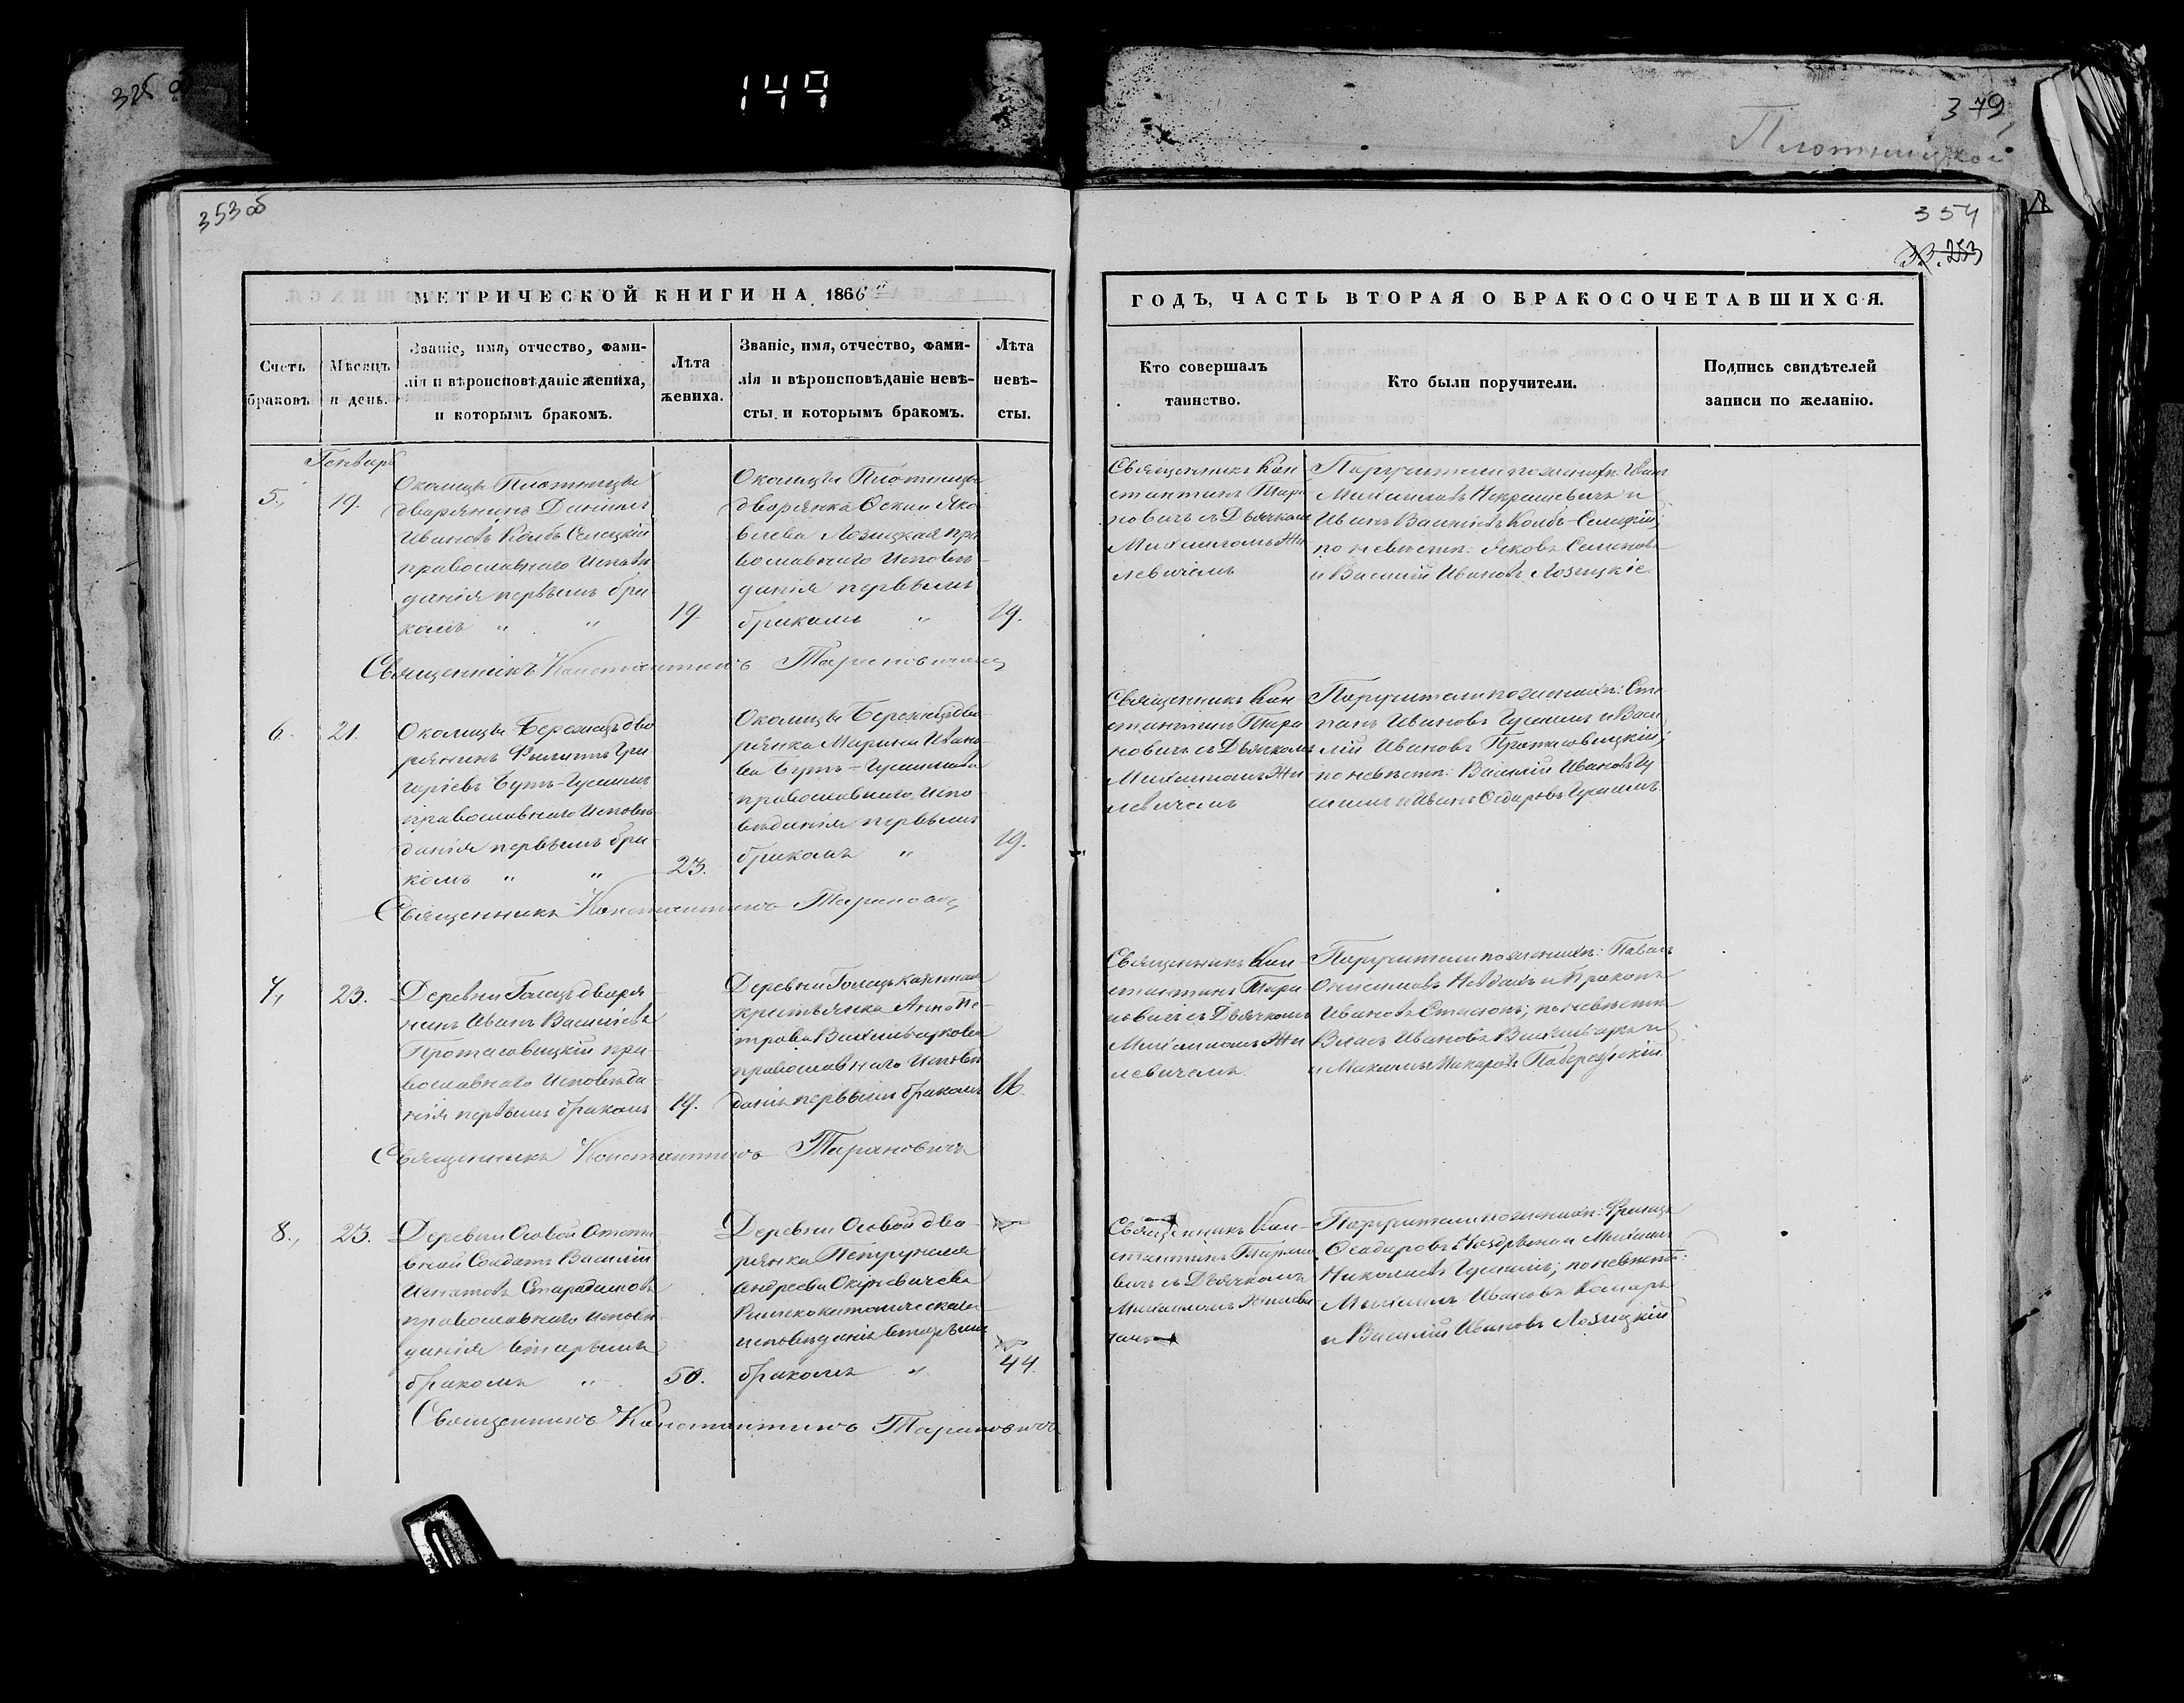 149
379
Плотницкой
353 об
354
МЕТРИЧЕСКОЙ КНИГИ НА 1866
ГОДЪ, ЧАСТЬ ВТОРАЯ О БРАКОСОЧЕТАВШИХСЯ.
Счетъ
браковъ
Мѣсяцъ
и день.
Званіе, имя, отчество, фами-
лія и вѣроисповѣданіе жениха,
и которымъ бракомъ.
Лѣта
жениха.
Званіе, имя, отчество, фами-
лія и вѣроисповѣданіе невѣ-
сты, и которымъ бракомъ.
Лѣта
невѣ-
сты.
Кто совершалъ
таинство.
Кто были поручители.
Подпись свидѣтелей
записи по желанію.
Генварь
5.
19.
Околицы Плотницы
дворянинъ Даніилъ
Ивановъ Колбъ Селецкій
православнаго Исповѣ
данія первымъ бра
комъ " "
19.
Околицы Плотницы
дворянка Яко
влева Лозицкая пра
вославнаго Исповѣ-
данія первымъ
бракомъ "
19.
Священникъ Кон
стантинъ Тара
новичъ съ Дьячкомъ
Михаиломъ Жи
левичемъ
Поручители по женихѣ: Иванъ
Михаиловъ Некрашевичъ и
Иванъ Колбъ-Селецкій;
по невѣстѣ: Яковъ Семеновъ
и Василій Ивановъ Лозицкіе.
Священникъ Константинъ Тарановичъ
6.
21.
Околицы Бережцъ дво
рянинъ Филиппъ Гри
горіевъ Бутъ-Гусаимъ
православнаго Исповѣ-
данія первымъ бра-
комъ " "
23.
Околицы Бережцъ дво-
рянка Марина Ивано-
ва Бутъ-Гусаимова
православнаго Испо-
вѣданія первымъ
бракомъ "
19.
Священникъ Кон
стантинъ Тара
новичъ съ Дьячкомъ
Михаиломъ Жи
левичемъ
Поручители по женихѣ: Сте-
панъ Ивановъ Гусаимъ и Васи
лій Ивановъ Протасовицкій;
по невѣстѣ: Василій Ивановъ Гу
саимъ и Иванъ Ѳедоровъ Гусаимъ
Священникъ Константинъ
7.
23.
Деревни Голецъ дворя
нинъ Иванъ Василіевъ
Протасовицкій пра-
вославнаго Исповѣда-
нія первымъ бракомъ
19.
Деревни Голецъ казенная
крестьянка Анна Пе-
трова
православнаго Исповѣ
данія первымъ бракомъ
Священникъ Кон-
стантинъ Тара-
новичъ съ Дьячкомъ
Михаиломъ Жи
левичемъ.
Поручители по женихѣ: Павелъ
Онисимовъ и Прокопъ
Ивановъ; по невѣстѣ
Власъ Ивановъ и
и Макаровъ
Священникъ Константинъ Тарановичъ
8.
23.
Деревни Особой Отста
вной Солдатъ Василій
Игнатовъ
православнаго Исповѣ
данія вторымъ
бракомъ "
50.
Деревни Особой дво-
рянка Петрунеля
Андреева
Римско католическаго
исповѣданія вторымъ
бракомъ "
44
Священникъ Кон-
стантинъ Тарано
вичъ съ Дьячкомъ
Михаиломъ Жилеви
чемъ
Поручители по женихѣ: Францъ
Ѳеодоровъ и Михаилъ
Николаевъ Гусаимъ; по невѣстѣ:
Михаилъ Ивановъ Комаръ
и Василій Ивановъ Лозицкій
Священникъ Константинъ Тарановичъ